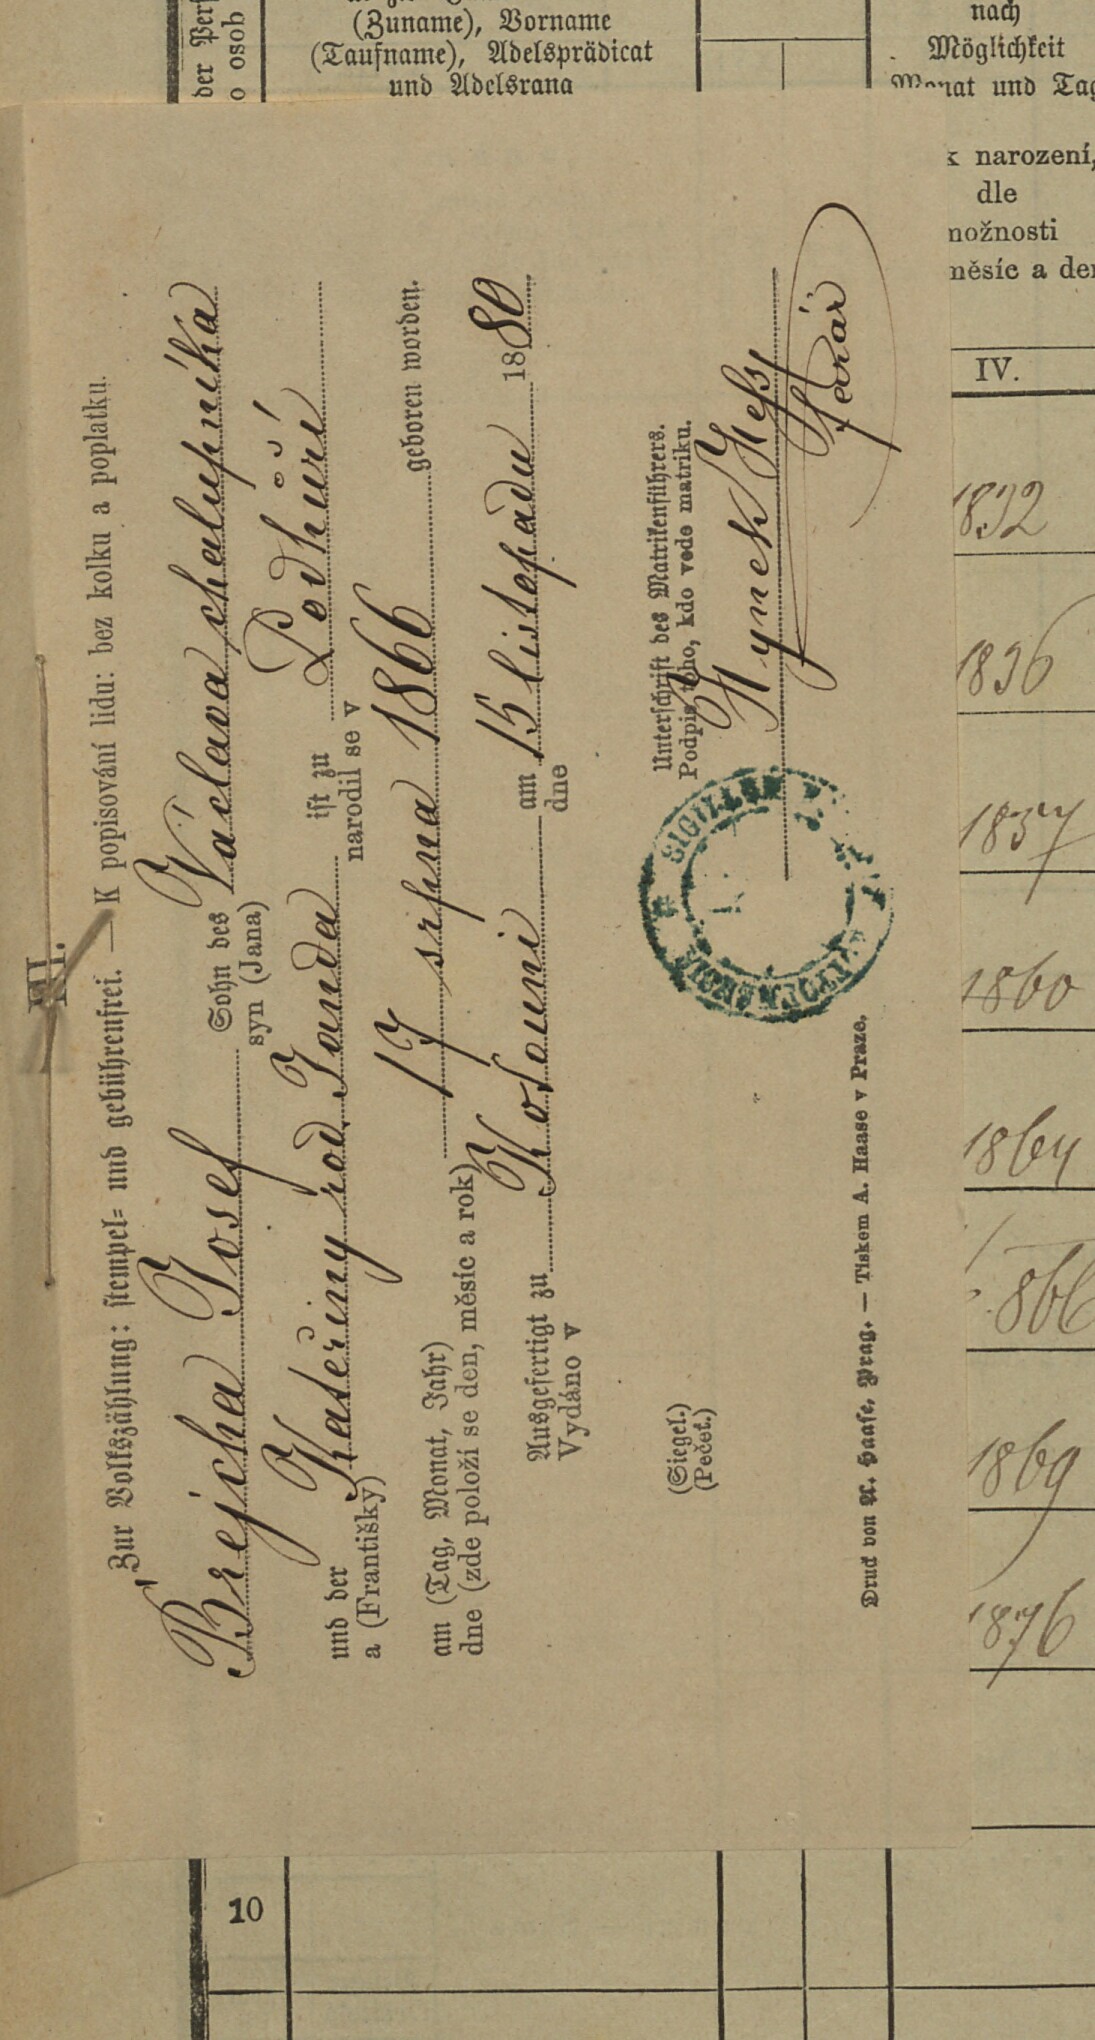 der Per
o osob
(Zuname), Vorname
(Taufname), Adelsprädicat
und Adelsrang
nach
Möglichkeit
Monat und Tag
k narození,
dle
možnosti
měsíc a den
IV.
1832
1836
1837
1860
1864
1866
1869
1876
10
Zur Volkszählung: stempel- und gebührenfrei. — K popisování lidu: bez kolku a poplatku.
Brejcha Josef Sohn des Václava chalupníka
syn (Jana)
und der Kateřiny rod. Janda ist zu Podhůří
a (Františky) narodil se v
am (Tag, Monat, Jahr) 17 srpna 1866 geboren worden.
dne (zde položí se den, měsíc a rok)
Ausgefertigt zu Kotouni am 15 listopadu 1880
Vydáno v dne
(Siegel.)
(Pečeť.)
Unterschrift des Matrikenführers.
Podpis toho, kdo vede matriku.
Hynek Hess
farář
SIGILLUM
Druck von A. Haase, Prag. — Tiskem A. Haase v Praze.